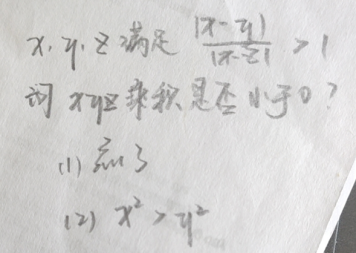 x, y, z 满足 |x-y| / |x-z| > 1
问 xyz 乘积是否小于0?
(1)
(2) x² > y²